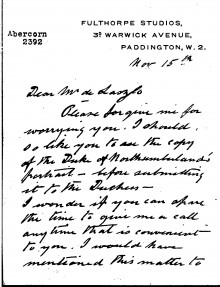 FULTHORPE STUDIOS,
Abercorn
2392
3ª WARWICK AVENUE,
PADDINGTON, W. 2.
Nov 15th
Dear Mr de Laszlo
Please forgive me for
worrying you. I should
so like you to see the copy
of the Duke of Northumberland's
portrait – before submitting
it to the Duchess –
I wonder if you can spare
the time to give me a call
any time that is convenient
to you. I would have
mentioned this matter to